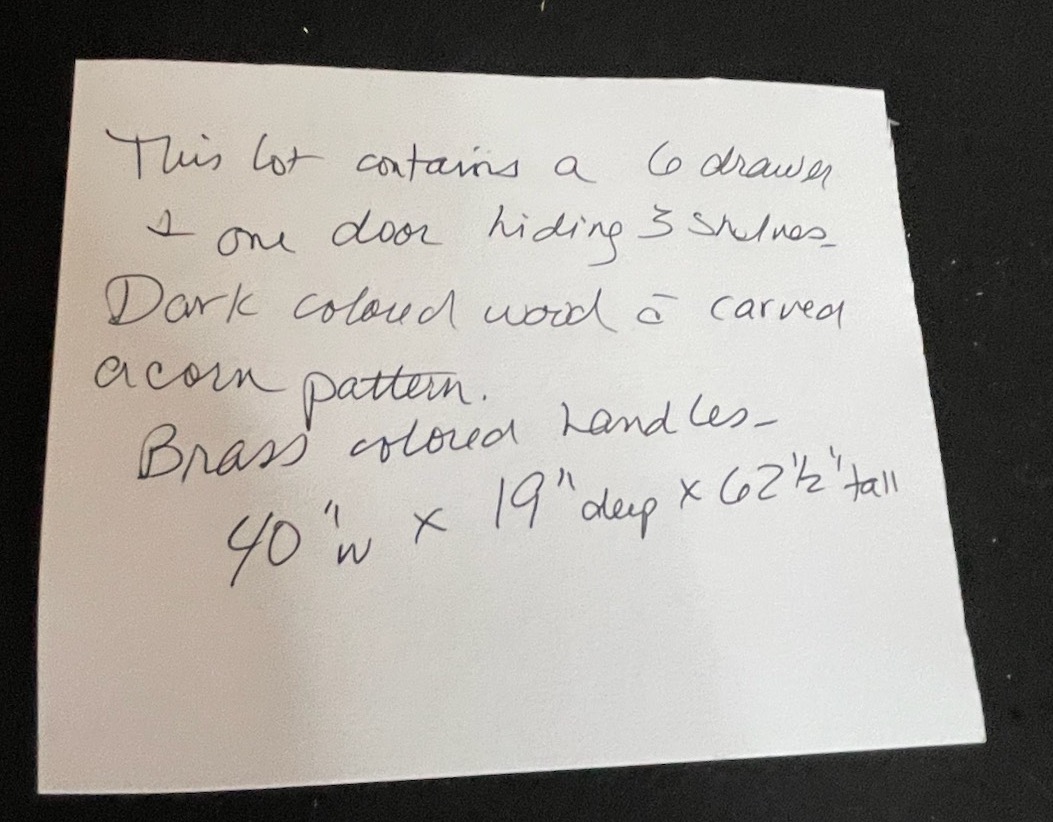 This lot contains a 6 drawer
& one door hiding 3 shelves
Dark colored wood c̄ carved
acorn pattern.
Brass colored handles-
40"w x 19" deep x 62 1/2" tall